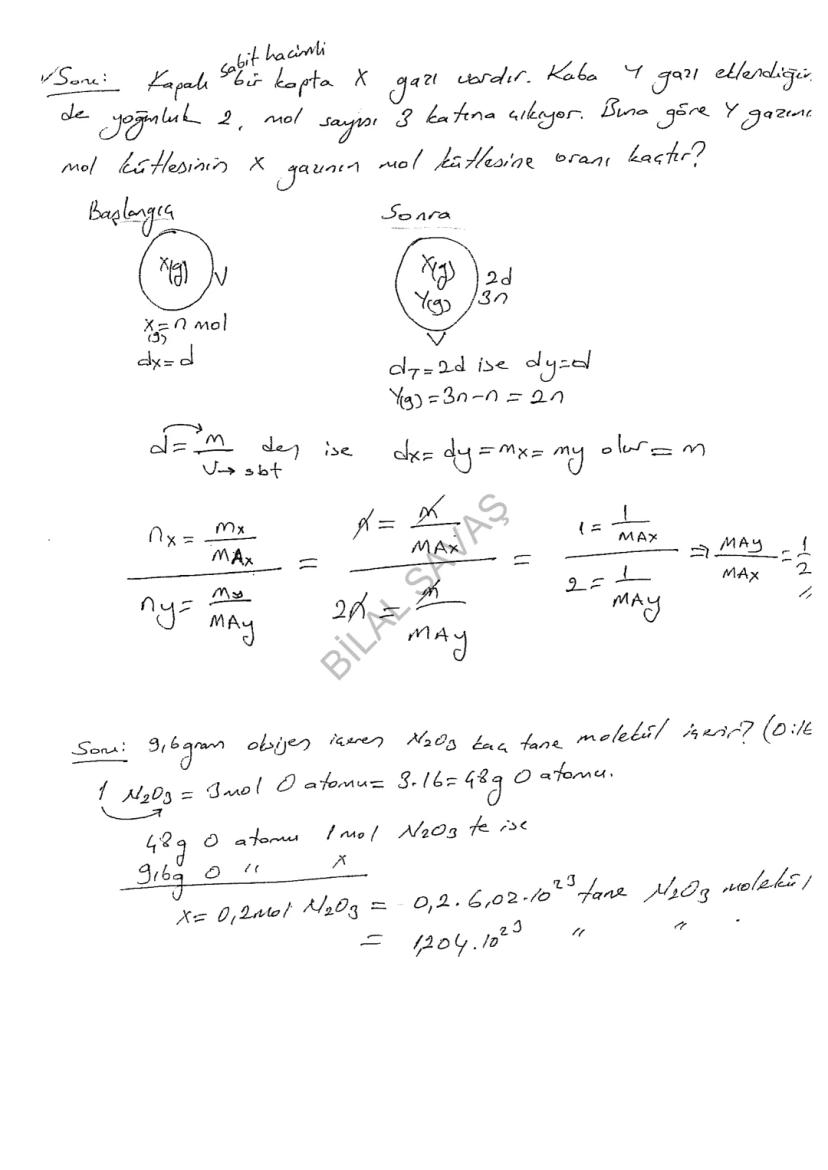 √Soru: Kapalı sabit hacimli bir kapta X gazı vardır. Kaba Y gazı eklendiğin
de yoğunluk 2, mol sayısı 3 katına çıkıyor. Buna göre Y gazını
mol kütlesinin X gazının mol kütlesine oranı kaçtır?
Başlangıç
Sonra
X(g)
V
X(g) = n mol
dx = d
X(g)
Y(g)
2d
3n
V
dT = 2d ise dy = d
Y(g) = 3n - n = 2n
d = m / V → sbt den ise dx = dy = mx = my olur = m
nx = mx / MAx
ny = my / MAy
=
n = m / MAx
2n = m / MAy
=
1 = 1 / MAx
2 = 1 / MAy
⇒ MAy / MAx = 1/2 //
BİLAL SAVAŞ
Soru: 9,6 gram oksijen içeren N2O3 kaç tane molekül içerir? (O:16
1 N2O3 = 3 mol O atomu = 3.16 = 48g O atomu.
48g O atomu 1 mol N2O3 te ise
9,6g O " x
x = 0,2 mol N2O3 = 0,2 . 6,02 . 10^23 tane N2O3 molekül
= 1,204 . 10^23 " " .